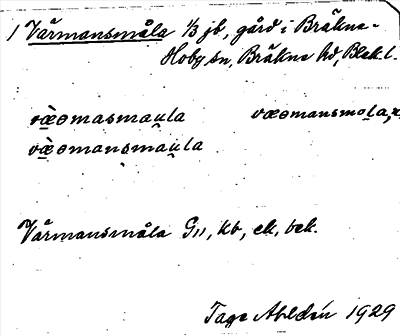 1 Värmansmåla 1/3 jb, gård i Bräkne-
Hoby sn, Bräkne hd, Blek. l.
væ̀ɵmasmau̯la væɵmansmo̯la,
væ̀ɵmansmau̯la
Värmansmåla G11, kb, ek, bek.
Tage Ahldén 1929